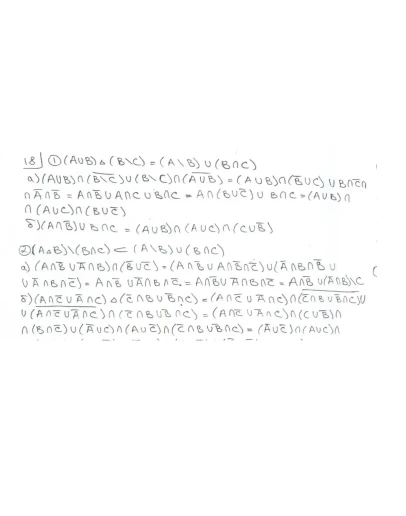 18) ① (A∪B) △ (B\C) = (A\B) ∪ (B∩C)
а) (A∪B)∩(B̅\̅C̅)∪(B\C)∩(A̅∪̅B̅) = (A∪B)∩(B̅∪C)∪B∩C̅∩
∩A̅∩B̅ = A∩B̅∪A∩C∪B∩C = A∩(B̅∪C)∪B∩C = (A∪B)∩
∩(A∪C)∩(B∪C̅)
б) (A∩B̅)∪B∩C = (A∪B)∩(A∪C)∩(C∪B̅)
② (A△B)\(B∩C) ⊂ (A\B)∪(B∩C)
а) (A∩B̅∪A̅∩B)∩(B̅∪C̅) = (A∩B̅∪A∩B̅∩C̅)∪(A̅∩B∩B̅∪
∪A̅∩B∩C̅) = A∩B̅∪A̅∩B∩C̅ = A∩B̅∪A̅∩B∩C̅ = A∩B̅∪(A̅∩B)\C
б) (A∩C̅∪A̅∩C) △ (C̅∩B∪B̅∩C) = (A∩C̅∪A̅∩C)∩(C̅∩B∪B̅∩C)∪
∪(A∩C̅∪A̅∩C)∩(C̅∩B∪B̅∩C) = (A∩C̅∪A̅∩C)∩(C∪B̅)∩
∩(B∩C̅)∪(A̅∪C)∩(A∪C̅)∩(C̅∩B∪B̅∩C) = (A̅∪C̅)∩(A∪C)∩